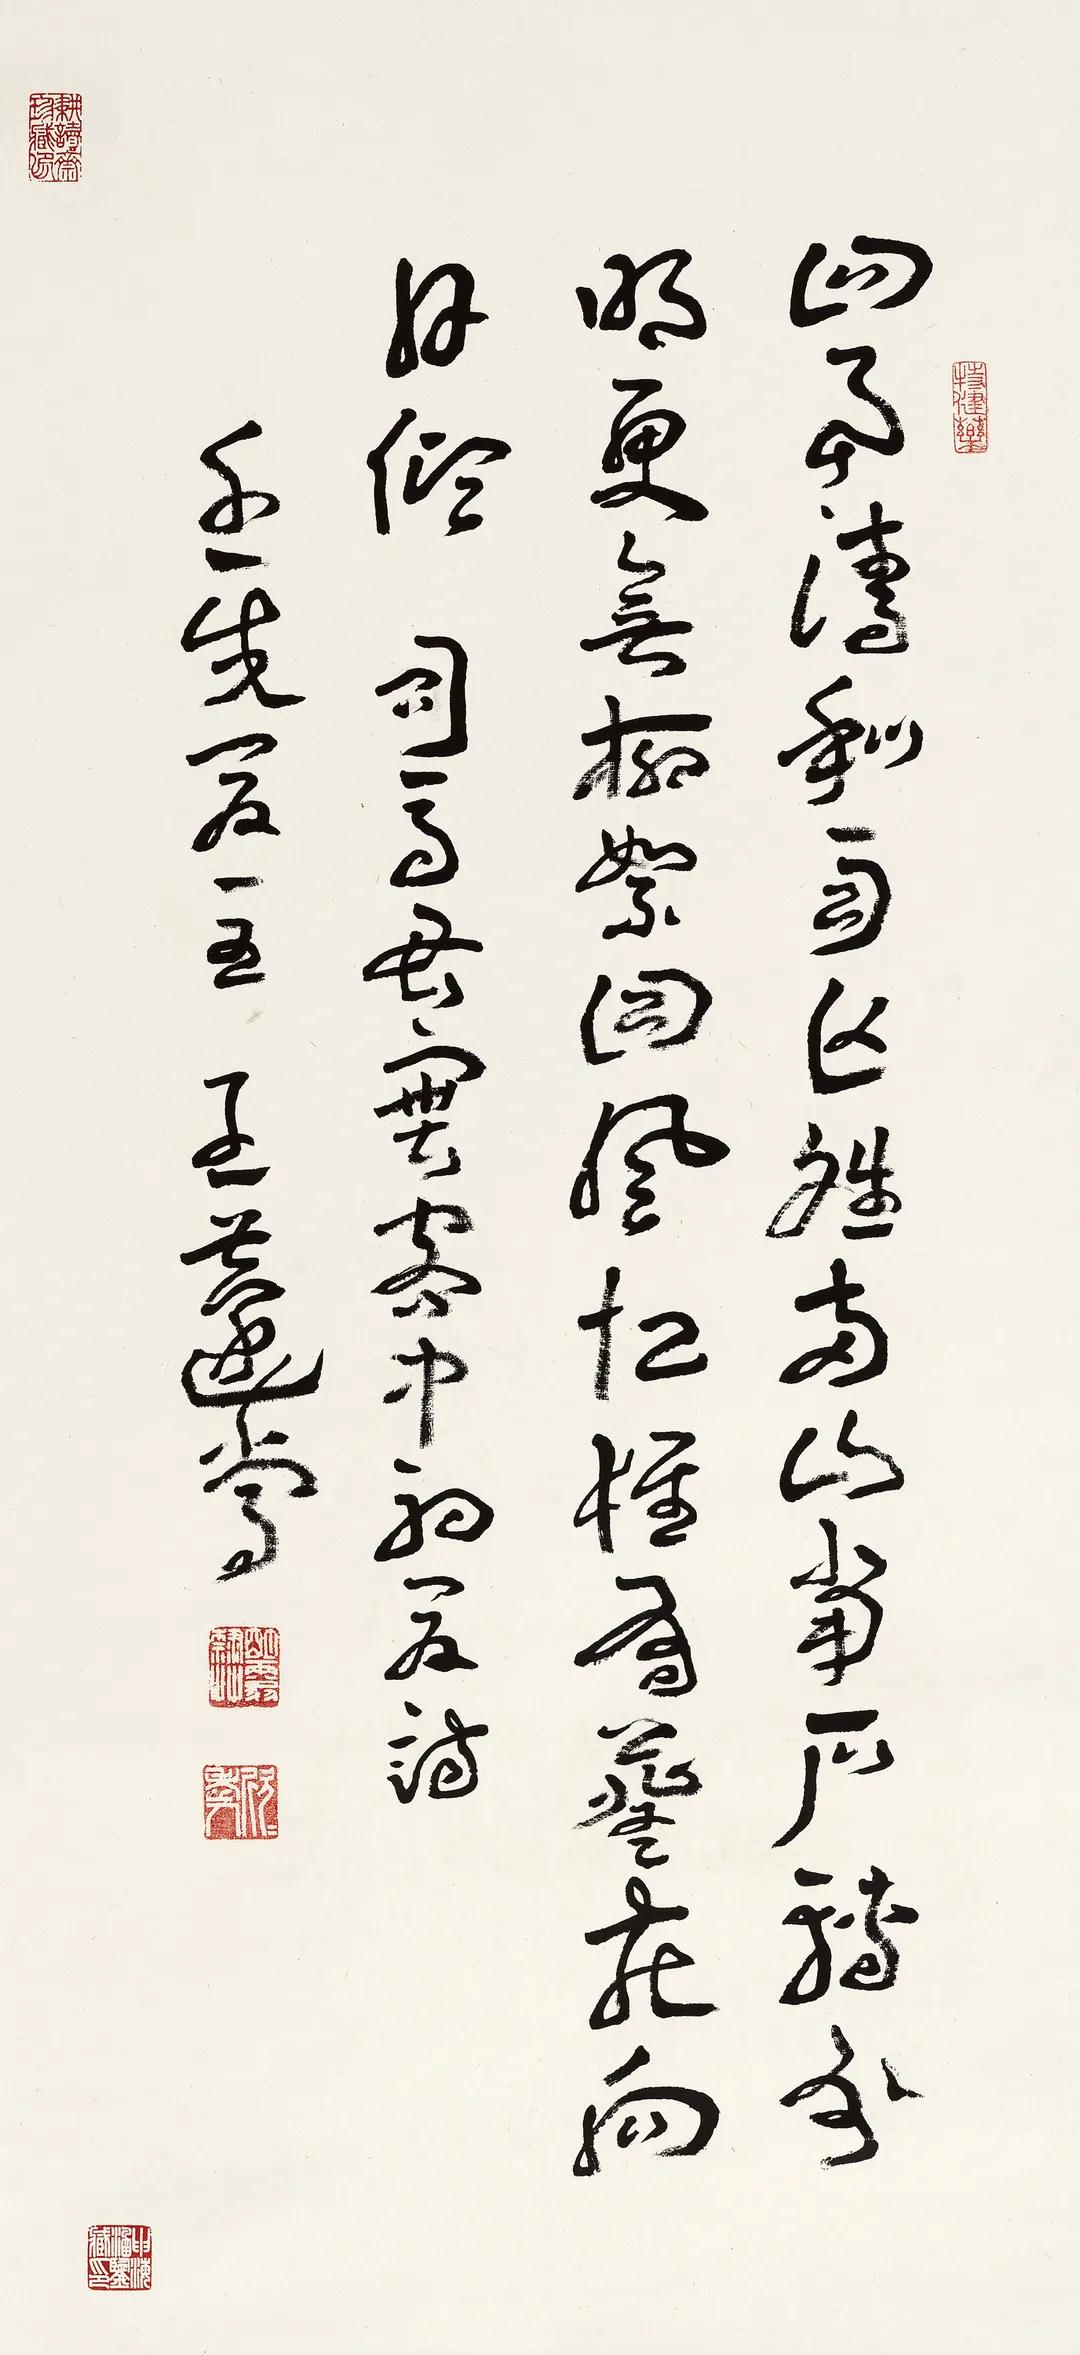 四月清和雨乍晴南山当户转分
明更无柳絮因风起惟有葵花向
日倾 司马君实客中初夏诗
千一先疋正 王蘧常